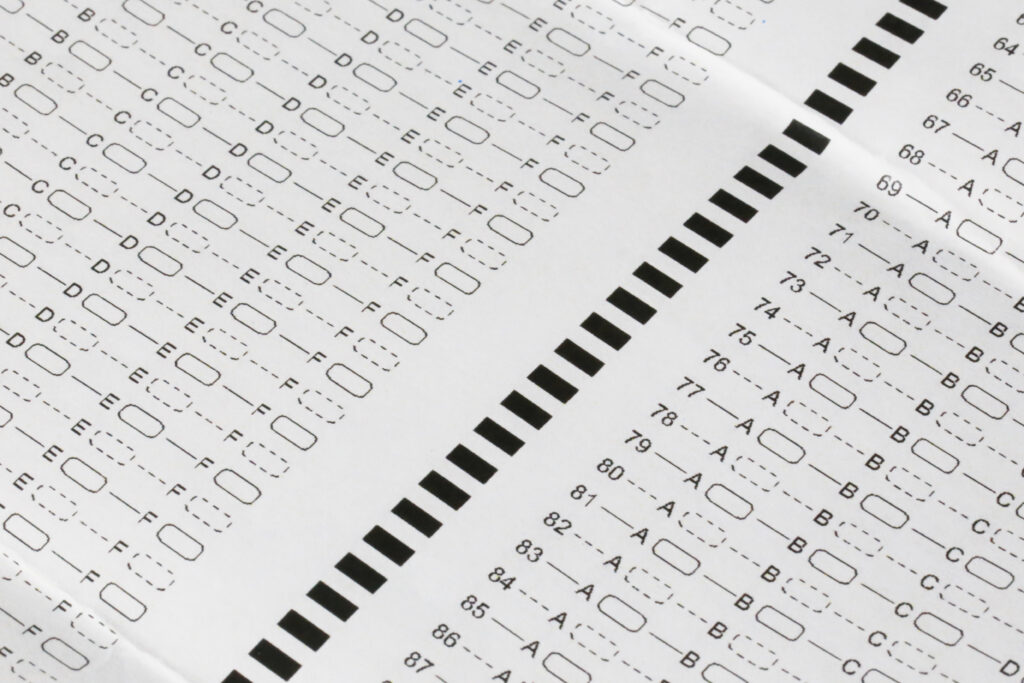 C D E F
B C D E F
B C D E F
B C D E F
C D E F
C D E F
C D E F
D E F
D E F
D E F
E F
E F
E F
F
F
F
F
64
65
66 A
67 A
68 A
69 A B
70 A B
71 A B
72 A B
73 A B C
74 A B C
75 A B C
76 A B C
77 A B C
78 A B C D
79 A B C
80 A B
81 A B
82 A B
83 A
84 A
85 A
86 A
87